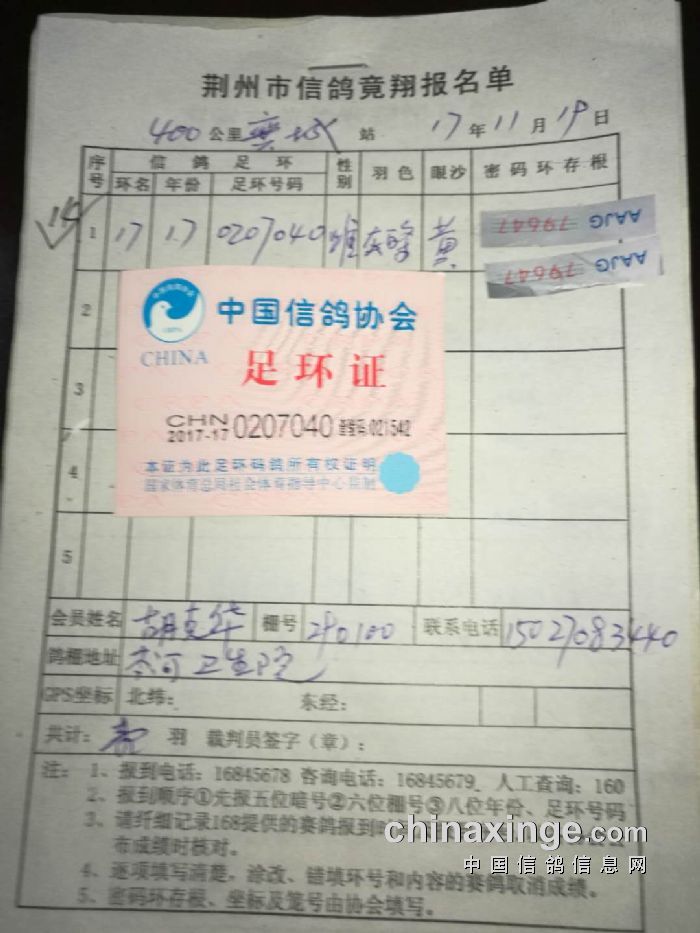 荆州市信鸽竟翔报名单
400公里 站 17年11月19日
序号 信鸽足环 性别 羽色 眼沙 密码环存根
环名 年份 足环号码
1 17 17 0207040 雄 灰 黄
AAJG 79647
AAJG 79647
2
3
4
5
中国信鸽协会
CHINA
足环证
CHN
2017-17 0207040 021542
本证为此足环码鸽所有权证明
国家体育总局社会体育指导中心监制
会员姓名 胡克华 棚号 290100 联系电话 15027083440
鸽棚地址 岑河卫生院
GPS坐标 北纬: 东经:
共计: 羽 裁判员签字(章):
注: 1、报到电话: 16845678 咨询电话: 16845679 人工查询: 160
2、报到顺序①先报五位暗号②六位棚号③八位年份、足环号码
3、请纤细记录168提供的赛鸽报到
布成绩时核对。
4、逐项填写清楚,涂改、错填环号和内容的赛鸽取消成绩。
5、密码环存根、坐标及笼号由协会填写。
chinaxinge.com
中国信鸽信息网